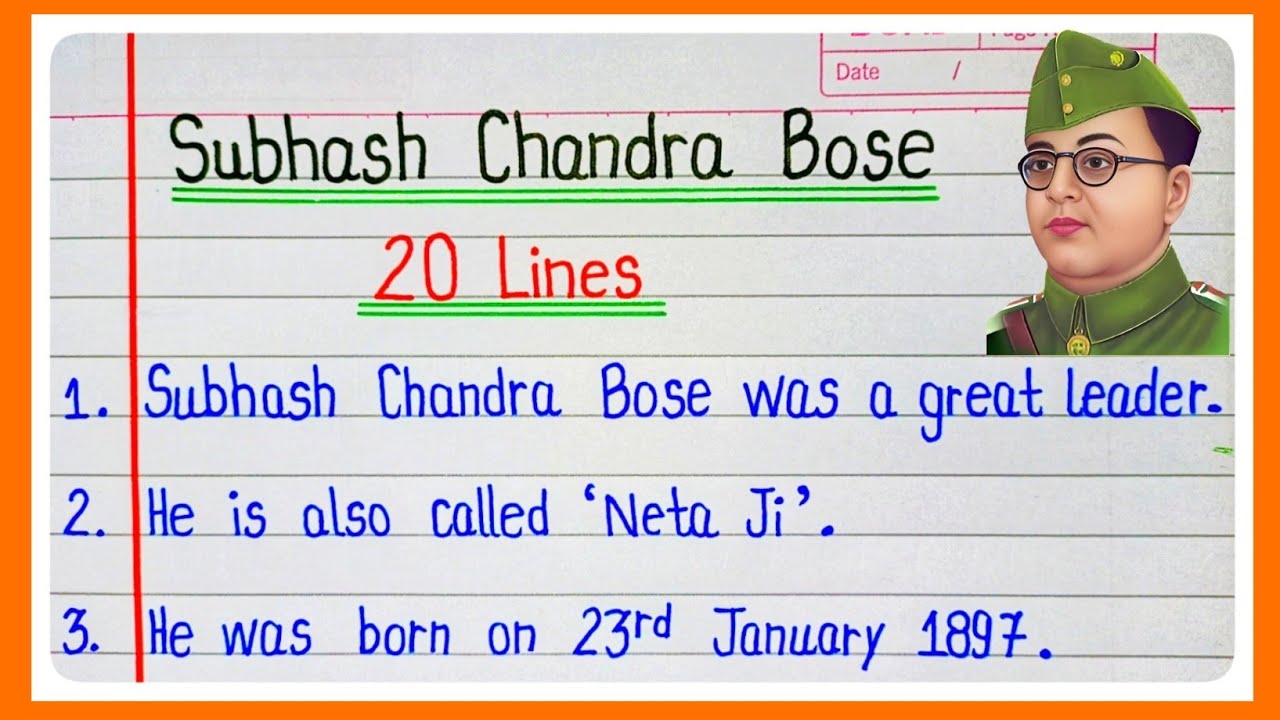 Date /
Subhash Chandra Bose
20 Lines
1. Subhash Chandra Bose was a great leader.
2. He is also called ‘Neta Ji’.
3. He was born on 23rd January 1897.